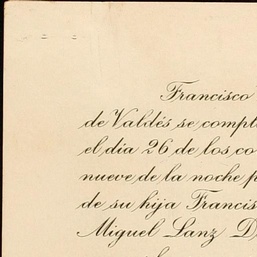 Francisco
de Valdés se compl
el dia 26 de los co
nueve de la noche p
de su hija Francis
Miguel Lanz D